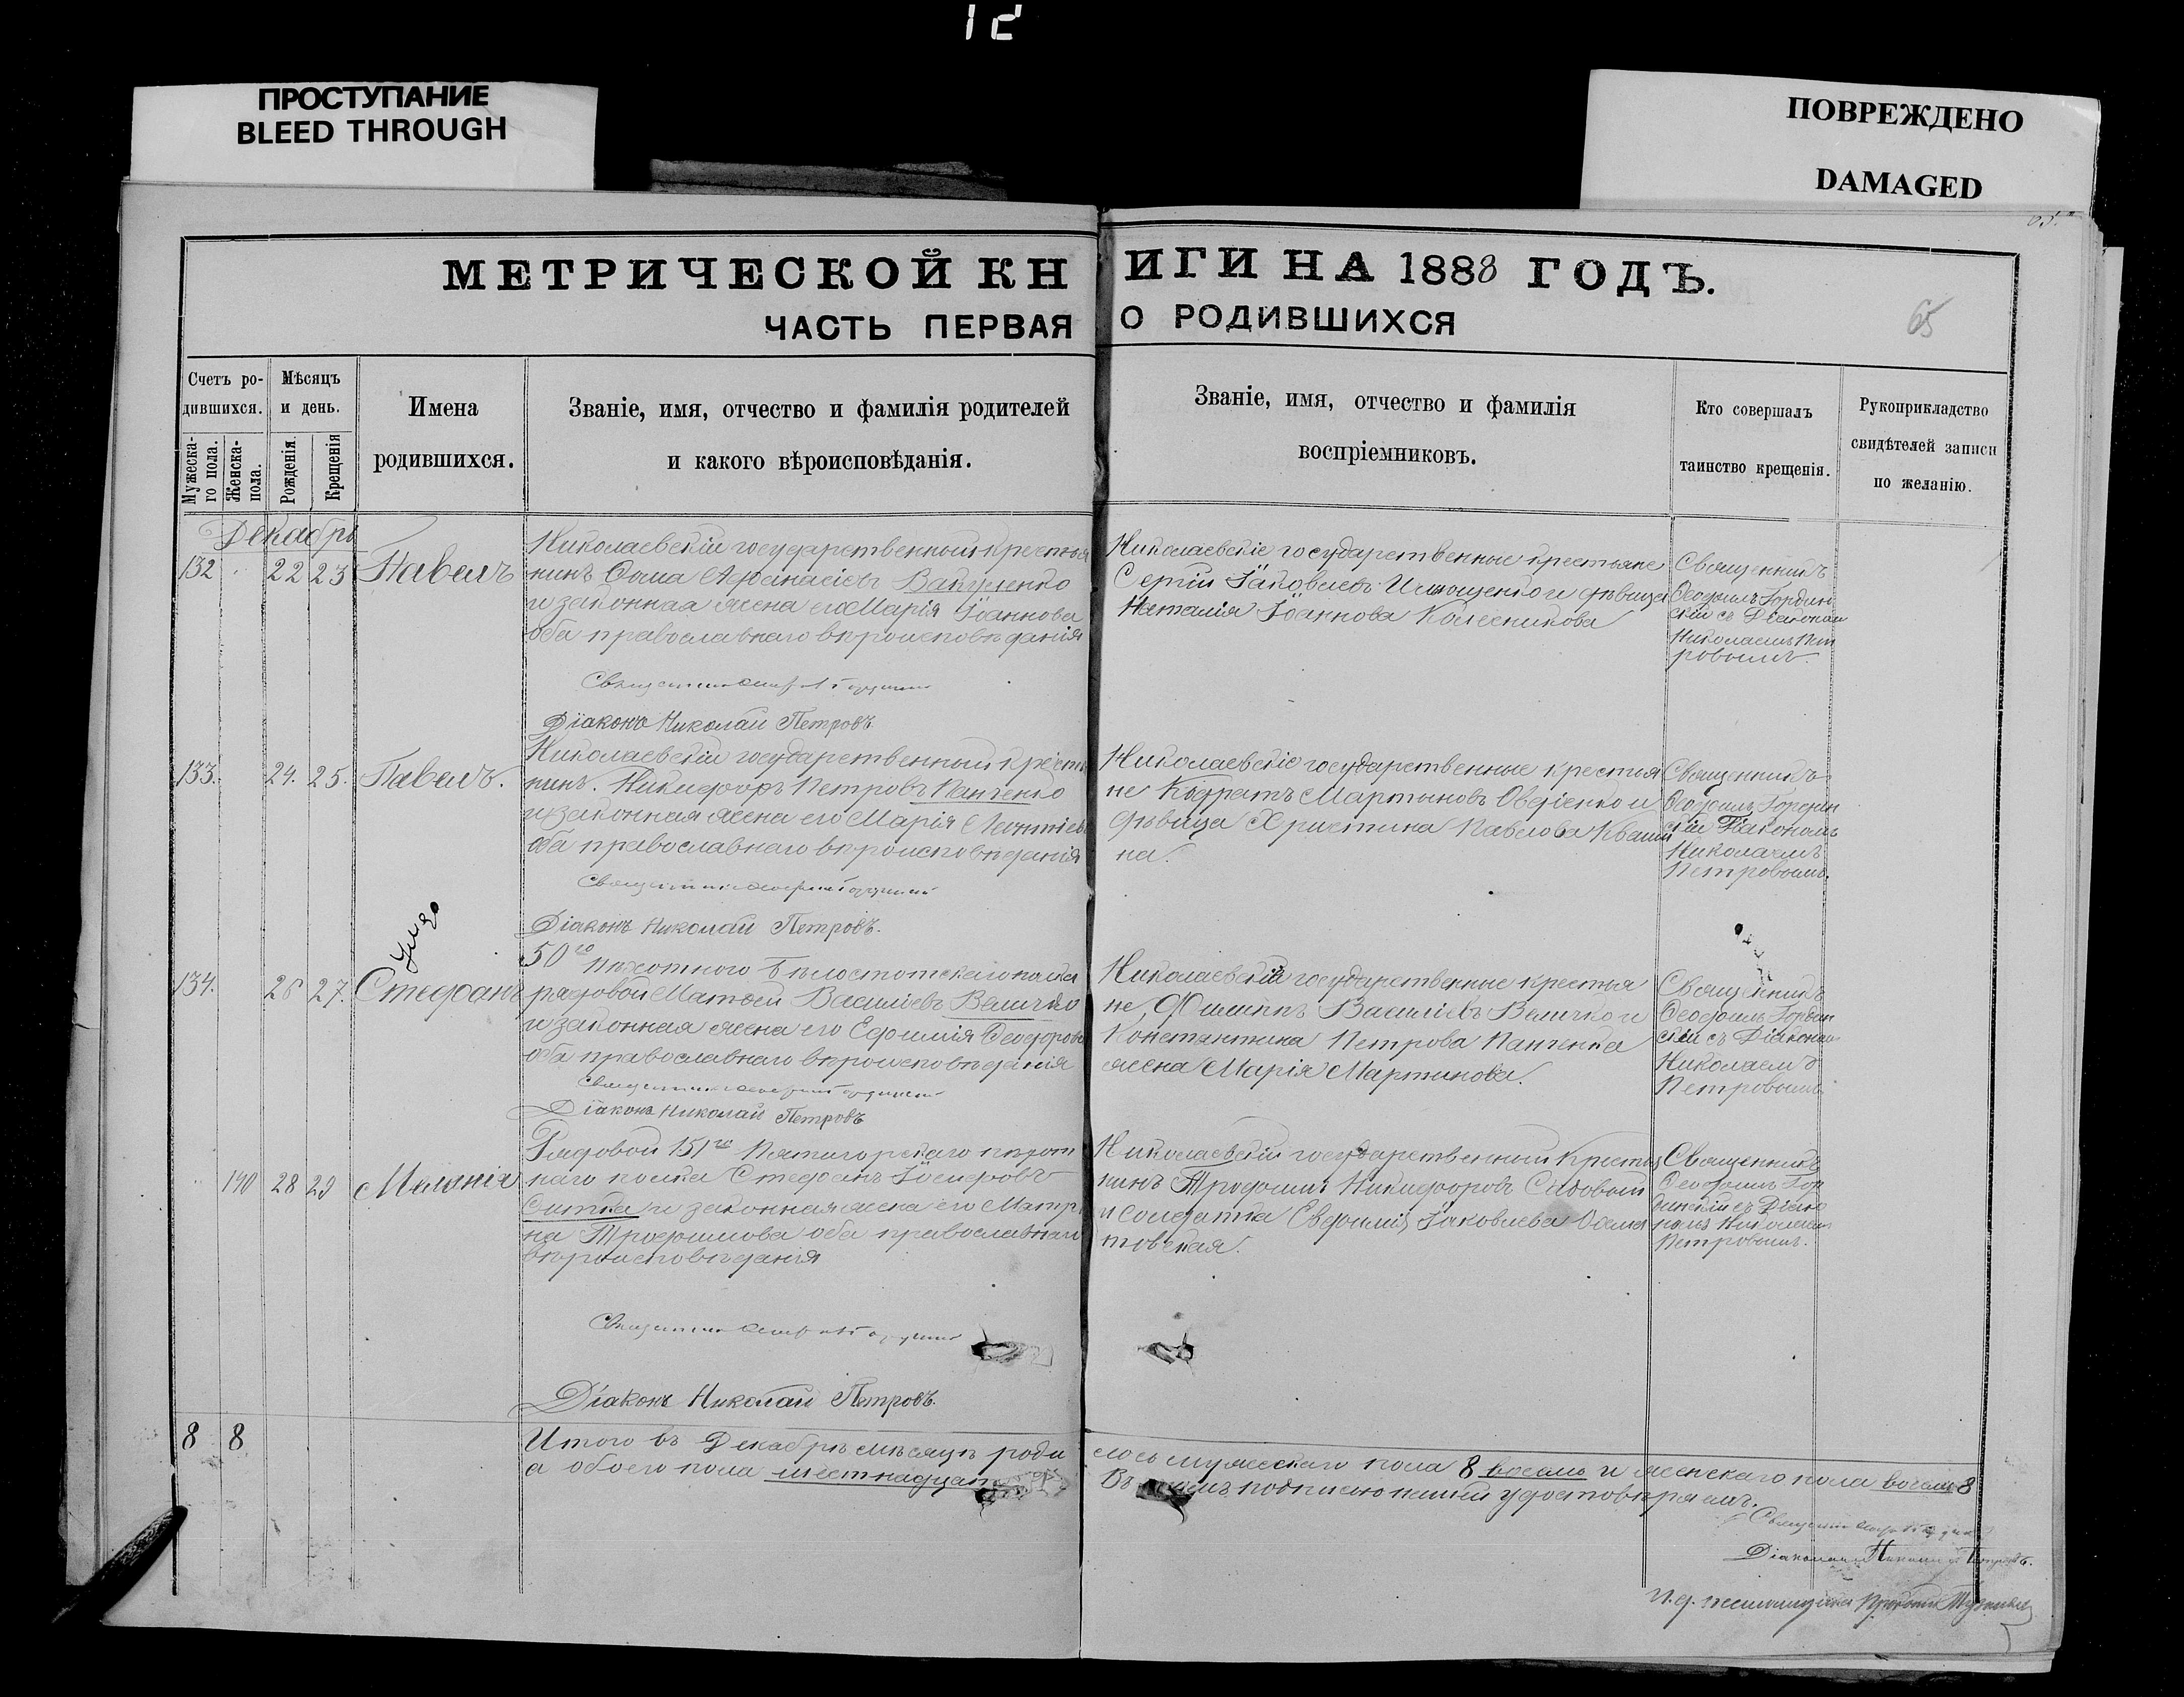 12
ПРОСТУПАНИЕ
BLEED THROUGH
ПОВРЕЖДЕНО
DAMAGED
МЕТРИЧЕСКОЙ КНИГИ НА 1888 ГОДЪ.
ЧАСТЬ ПЕРВАЯ О РОДИВШИХСЯ
65
Счетъ ро-
дившихся.
Мужеска-
го пола.
Женска-
пола.
Мѣсяцъ
и день.
Рожденія.
Крещенія
Имена
родившихся.
Званіе, имя, отчество и фамилія родителей
и какого вѣроисповѣданія.
Званіе, имя, отчество и фамилія
воспріемниковъ.
Кто совершалъ
таинство крещенія.
Рукоприкладство
свидѣтелей записи
по желанію.
Декабрь
132 22 23 Павелъ
Николаевскій государственный крестья
нинъ Ѳома Аѳанасіевъ
и законная жена его Марія Іоаннова
оба православнаго вѣроисповѣданія
Діаконъ Николай Петровъ
Николаевскіе государственные крестьяне
Сергій Іаковлевъ и дѣвица
Наталія Іоаннова Колесникова
Священникъ
Ѳеофилъ Гордин
скій съ Діаконом
Николаемъ Пет
ровымъ.
133. 24. 25. Павелъ.
Николаевскій государственный крестья
нинъ. Никифоръ Петровъ Панченко
и законная жена его Марія Леонтіев
оба православнаго вѣроисповѣданія
Діаконъ Николай Петровъ.
Николаевскіе государственные крестья
не Кодратъ Мартыновъ Овдіенко и
дѣвица Христина Павлова Кваши
на.
Священникъ
Ѳеофилъ Гордин
скій Діакономъ
Николаемъ
Петровымъ.
134. 26 27. Стефанъ
50го пѣхотнаго Бѣлостотскаго полка
рядовой Матѳей Василіевъ Величко
и законная жена его Ефимія Ѳеодорова
оба православнаго вѣроисповѣданія
Діаконъ Николай Петровъ
Николаевскій государственные крестья
не, Филиппъ Василіевъ Величко и
Константина Петрова Панченка
жена Марія Мартинова.
Священникъ
Ѳеофилъ Гордин
скій съ Діаконом
Николаемъ
Петровымъ
140 28 29 Меланія
Рядовой 151го Пятигорскаго пѣхот
наго полка Стефанъ Іосифовъ
Ситка и законная жена его Матр
на Трофимова оба православнаго
вѣроисповѣданія
Діаконъ Николай Петровъ.
Николаевскій государственный Крестья
нинъ Трофимъ Никифоровъ Садовый
и солдатка Евфимія Іаковлева
товская.
Священникъ
Ѳеофилъ Гор
динскій съ Діако
номъ Николаем
Петровымъ.
8 8
Итого въ Декабрѣ мѣсяцѣ роди
лось мужескаго пола 8 восемь и женскаго пола восемь 8
а обоего пола шестнадцать
подписью нашей удостовѣряемъ.